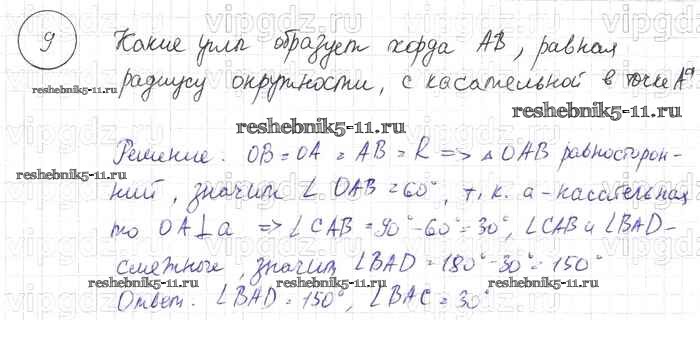 9
Какие углы образует хорда AB, равная
радиусу окружности, с касательной в точке A?
reshebnik5-11.ru
reshebnik5-11.ru
reshebnik5-11.ru
Решение. OB = OA = AB = R => △OAB равносторон-
reshebnik5-11.ru
ний, значит ∠OAB = 60°, т.к. a - касательная,
то OA⊥a => ∠CAB = 90° - 60° = 30°, ∠CAB и ∠BAD -
смежные, значит ∠BAD = 180° - 30° = 150°
Ответ. ∠BAD = 150°, ∠BAC = 30°
reshebnik5-11.ru
reshebnik5-11.ru
reshebnik5-11.ru